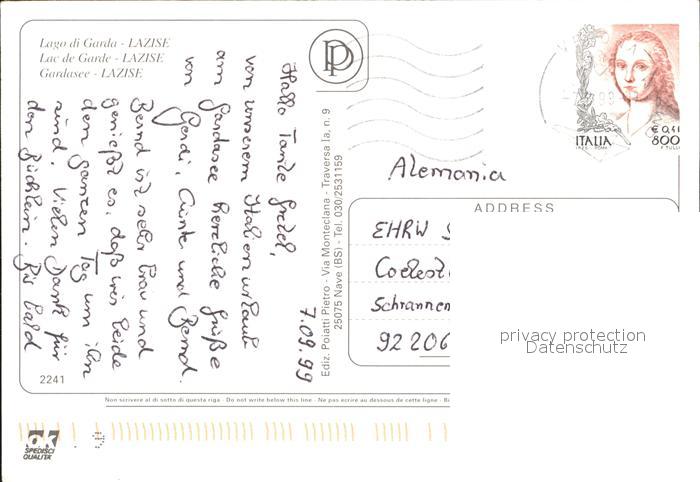 Lago di Garda - LAZISE
Lac de Garde - LAZISE
Gardasee - LAZISE
Hallo Tante Gretel,
von unserem Italienurlaub
am Gardasee herzliche Grüße
von Gerdi, Günter und Bernd.
Bernd ist sehr brav und
genießt es, daß wir beide
den ganzen Tag um ihn
sind. Vielen Dank für
den Büchlein. Bis bald
7.09.99
2241
Ediz. Polatti Pietro - Via Monteclana - Traversa Ia, n. 9
25075 Nave (BS) - Tel. 030/2531159
ITALIA
€ 0,41
800
Alemania
ADDRESS
EHRW
Coelest
Schrannen
92206
privacy protection
Datenschutz
Non scrivere al di sotto di questa riga - Do not write below this line - Ne pas ecrire au dessous de cette ligne - Bi
ok
SPEDISCI
QUALITÀ